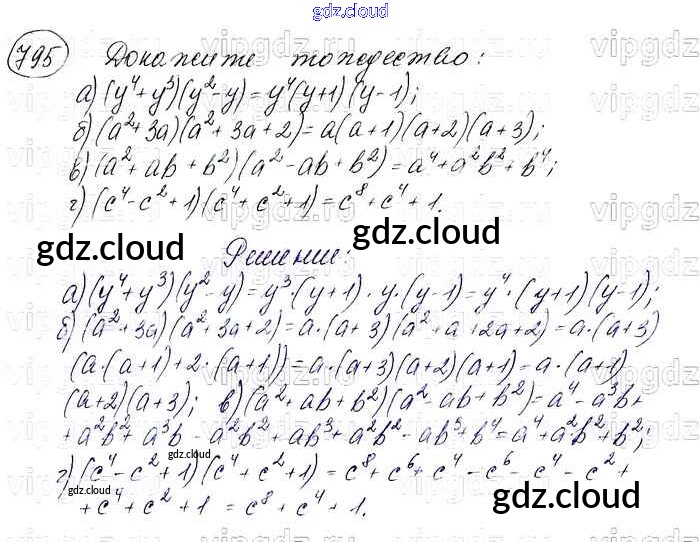 gdz.cloud
795 Докажите тождество:
а) (y⁴+y³)(y²-y)=y⁴(y+1)(y-1);
б) (a²+3a)(a²+3a+2)=a(a+1)(a+2)(a+3);
в) (a²+ab+b²)(a²-ab+b²)=a⁴+a²b²+b⁴;
г) (c⁴-c²+1)(c⁴+c²+1)=c⁸+c⁴+1.
gdz.cloud gdz.cloud
Решение:
а) (y⁴+y³)(y²-y)=y³·(y+1)·y·(y-1)=y⁴·(y+1)(y-1);
б) (a²+3a)(a²+3a+2)=a·(a+3)(a²+a+2a+2)=a·(a+3)
(a·(a+1)+2·(a+1))=a·(a+3)(a+2)(a+1)=a·(a+1)
(a+2)(a+3); в) (a²+ab+b²)(a²-ab+b²)=a⁴-a³b+
+a²b²+a³b-a²b²+ab³+a²b²-ab³+b⁴=a⁴+a²b²+b²;
gdz.cloud
г) (c⁴-c²+1)(c⁴+c²+1)=c⁸+c⁶+c⁴-c⁶-c⁴-c²+
gdz.cloud gdz.cloud
+c⁴+c²+1=c⁸+c⁴+1.